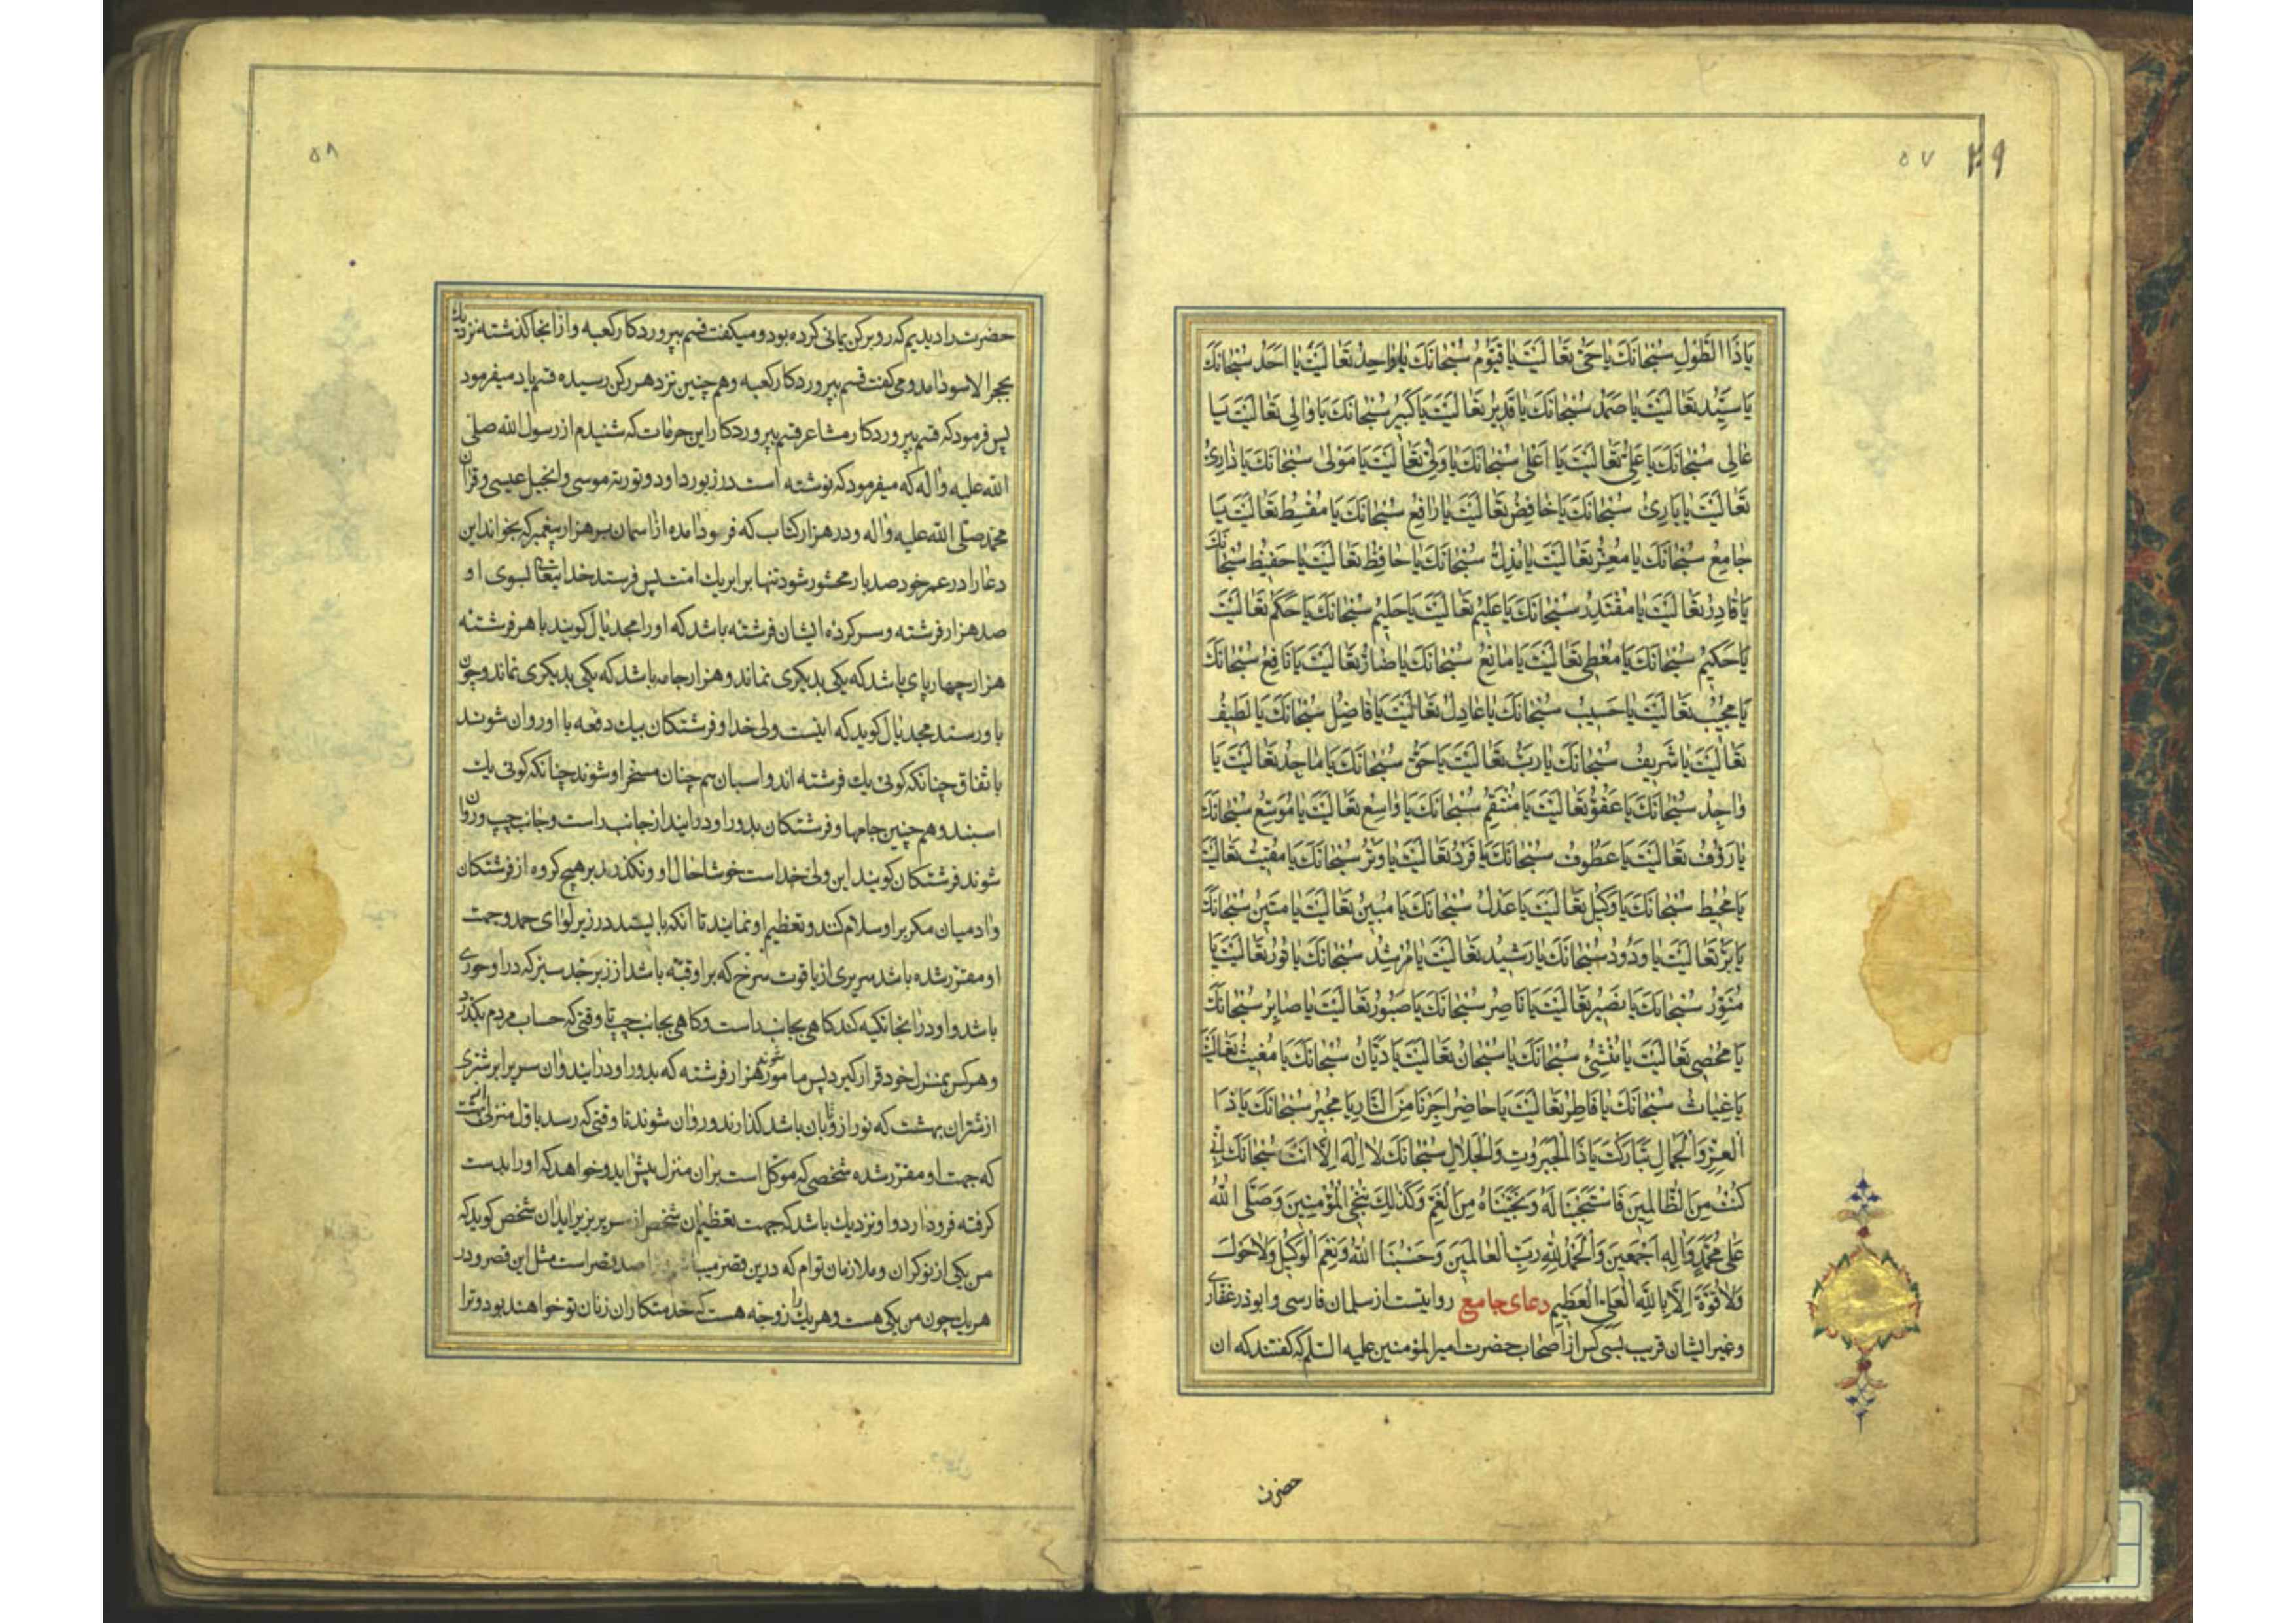 ۵۷ ۲۹
یَا ذَا الطَّوْلِ سُبْحَانَكَ یَا حَیُّ تَعَالَیْتَ یَا قَیُّومُ سُبْحَانَكَ یَا وَاحِدُ تَعَالَیْتَ یَا اَحَدُ سُبْحَانَكَ
یَا سَیِّدُ تَعَالَیْتَ یَا صَمَدُ سُبْحَانَكَ یَا قَدِیرُ تَعَالَیْتَ یَا كَبِیرُ سُبْحَانَكَ یَا وَالِی تَعَالَیْتَ یَا
عَالِی سُبْحَانَكَ یَا عَلِیُّ تَعَالَیْتَ یَا اَعْلٰی سُبْحَانَكَ یَا وَلِیُّ تَعَالَیْتَ یَا مَوْلٰی سُبْحَانَكَ یَا ذَارِئُ
تَعَالَیْتَ یَا بَارِئُ سُبْحَانَكَ یَا خَافِضُ تَعَالَیْتَ یَا رَافِعُ سُبْحَانَكَ یَا مُقْسِطُ تَعَالَیْتَ یَا
جَامِعُ سُبْحَانَكَ یَا مُعِزُّ تَعَالَیْتَ یَا مُذِلُّ سُبْحَانَكَ یَا حَافِظُ تَعَالَیْتَ یَا حَفِیظُ سُبْحَانَكَ
یَا قَادِرُ تَعَالَیْتَ یَا مُقْتَدِرُ سُبْحَانَكَ یَا عَلِیمُ تَعَالَیْتَ یَا حَلِیمُ سُبْحَانَكَ یَا حَكَمُ تَعَالَیْتَ
یَا حَكِیمُ سُبْحَانَكَ یَا مُعْطِی تَعَالَیْتَ یَا مَانِعُ سُبْحَانَكَ یَا ضَارُّ تَعَالَیْتَ یَا نَافِعُ سُبْحَانَكَ
یَا مُجِیبُ تَعَالَیْتَ یَا حَسِیبُ سُبْحَانَكَ یَا عَادِلُ تَعَالَیْتَ یَا فَاضِلُ سُبْحَانَكَ یَا لَطِیفُ
تَعَالَیْتَ یَا شَرِیفُ سُبْحَانَكَ یَا رَبُّ تَعَالَیْتَ یَا حَقُّ سُبْحَانَكَ یَا مَاجِدُ تَعَالَیْتَ یَا
وَاحِدُ سُبْحَانَكَ یَا عَفُوُّ تَعَالَیْتَ یَا مُنْتَقِمُ سُبْحَانَكَ یَا وَاسِعُ تَعَالَیْتَ یَا مُوَسِّعُ سُبْحَانَكَ
یَا رَؤُفُ تَعَالَیْتَ یَا عَطُوفُ سُبْحَانَكَ یَا فَرْدُ تَعَالَیْتَ یَا وِتْرُ سُبْحَانَكَ یَا مُقِیتُ تَعَالَیْتَ
یَا مُحِیطُ سُبْحَانَكَ یَا وَكِیلُ تَعَالَیْتَ یَا عَدْلُ سُبْحَانَكَ یَا مُبِینُ تَعَالَیْتَ یَا مَتِینُ سُبْحَانَكَ
یَا بَرُّ تَعَالَیْتَ یَا وَدُودُ سُبْحَانَكَ یَا رَشِیدُ تَعَالَیْتَ یَا مُرْشِدُ سُبْحَانَكَ یَا نُورُ تَعَالَیْتَ یَا
مُنَوِّرُ سُبْحَانَكَ یَا نَصِیرُ تَعَالَیْتَ یَا نَاصِرُ سُبْحَانَكَ یَا صَبُورُ تَعَالَیْتَ یَا صَابِرُ سُبْحَانَكَ
یَا مُحْصِی تَعَالَیْتَ یَا مُنْشِئُ سُبْحَانَكَ یَا سُبْحَانُ تَعَالَیْتَ یَا دَیَّانُ سُبْحَانَكَ یَا مُغِیثُ تَعَالَیْتَ
یَا غِیَاثُ سُبْحَانَكَ یَا فَاطِرُ تَعَالَیْتَ یَا حَاضِرُ اَجِرْنَا مِنَ النَّارِ یَا مُجِیرُ سُبْحَانَكَ یَا ذَا
الْعِزِّ وَالْجَمَالِ تَبَارَكْتَ یَا ذَا الْجَبَرُوتِ وَالْجَلَالِ سُبْحَانَكَ لَا اِلٰهَ اِلَّا اَنْتَ سُبْحَانَكَ اِنِّی
كُنْتُ مِنَ الظَّالِمِینَ فَاسْتَجَبْنَا لَهُ وَنَجَّیْنَاهُ مِنَ الْغَمِّ وَكَذٰلِكَ نُنْجِی الْمُؤْمِنِینَ وَصَلَّی اللهُ
عَلٰی مُحَمَّدٍ وَاٰلِهِ اَجْمَعِینَ وَالْحَمْدُ لِلّٰهِ رَبِّ الْعَالَمِینَ وَحَسْبُنَا اللهُ وَنِعْمَ الْوَكِیلُ وَلَا حَوْلَ
وَلَا قُوَّةَ اِلَّا بِاللهِ الْعَلِیِّ الْعَظِیمِ دعای جامع روایتست از سلمان فارسی و ابوذر غفاری
وغیر ایشان قریب بسی کس از اصحاب حضرت امیرالمؤمنین علیه السلم که گفتند که ان
حضرت
۵۸
حضرت را دیدیم که رو بر کن یمانی کرده بود و میکفت قسم بپروردکار کعبه و از انجا کذشته نزدیك
بحجر الاسود امد و می کفت قسم بپروردکار کعبه و هم چنین نزد هر رکن رسیده قسم یاد میفرمود
پس فرمود که قسم بپروردکار مشاعر قسم بپروردکار این حرمات که شنیدم از رسول الله صلی
الله علیه واله که میفرمود که نوشته است در زبور داود و توریة موسی و انجیل عیسی و قران
محمد صلی الله علیه واله و در هزار کتاب که فرود امده از اسمان بر هزار پیغمبر که بخواند این
دعا را در عمر خود صد بار محشور شود تنها برابر یك امت پس فرستد خدایتعالی بسوی او
صد هزار فرشته و سرکرده ایشان فرشته باشد که او را مجدیال کویند با هر فرشته
هزار چهارپای باشد که یکی بدیکری نماند و هزار جامه باشد که یکی بدیکری نماند و چون
باو رسند مجدیال کوید که اینست ولی خدا و فرشتکان بیك دفعه با او روان شوند
باتفاق چنانکه کوئی یك فرشته اند و اسبان هم چنان مسخر او شوند چنانکه کوئی یك
اسبند و هم چنین جامها و فرشتکان بدور او درایند از جانب راست و جانب چپ و روان
شوند فرشتکان کویند این ولی خداست خوشا حال او و نکذرند بر هیچ کروه از فرشتکان
و ادمیان مکر بر او سلام کنند و تعظیم او نمایند تا انکه بایستد در زیر لوای حمد و جهت
او مقرر شده باشد سریری از یاقوت سرخ که بر او قبّه باشد از زبرجد سبز که در او حوری
باشد و او در انجا تکیه کند کاهی بجانب راست و کاهی بجانب چپ تا وقتی که حساب مردم بکذرد
و هر کس بمنزل خود قرار کیرد پس مامور شوند هزار فرشته که بدور او درایند و ان سریر را بر شتری
از شتران بهشت که نور از و تابان باشد کذارند و روان شوند تا وقتی که رسد باول منزلی
که جهت او مقرر شده شخصی که موکل است بران منزل پیش اید و خواهد که او را بدست
کرفته فرود ارد و او نزدیك باشد که جهت تعظیم ان شخص از سریر بزیر اید ان شخص کوید که
من یکی از نوکران و ملازمان توام که درین قصر صد قصر است مثل این قصر و در
هر یك چون من یکی هست و هر یك را زوجه هست که خدمتکاران زنان تو خواهند بود و ترا